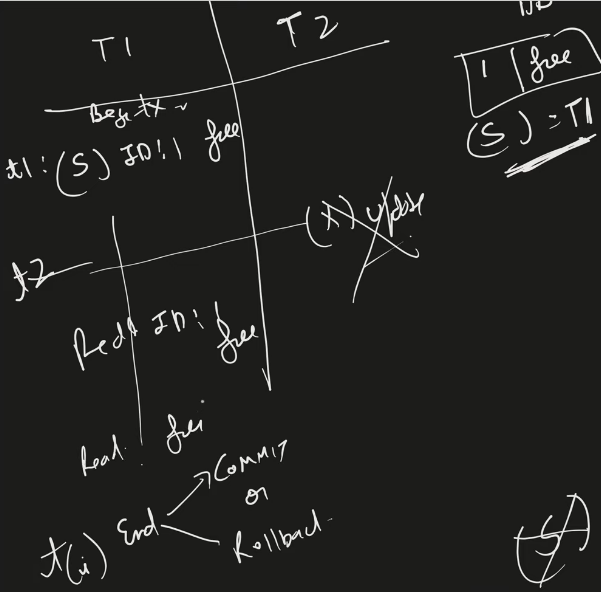 T1 T2
DB
1 | free
(S) = T1
Begin tx
t1: (S) ID:1 free
(X) update
t2
Read ID:1 free
Read free
COMMIT
or
t(n) End
Rollback